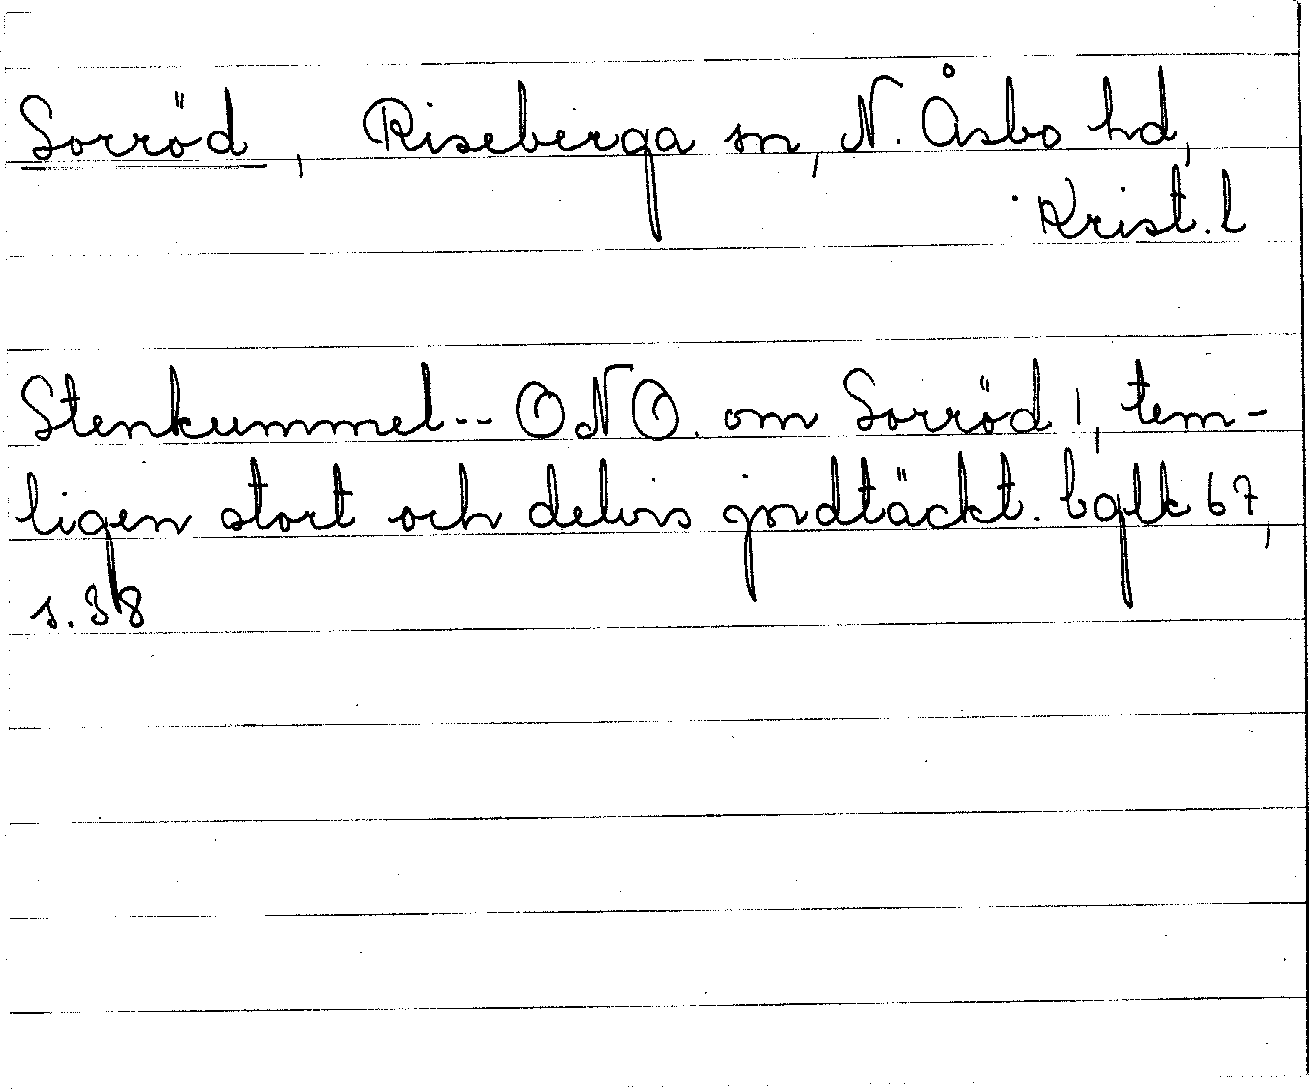 Sorröd, Riseberga sn, N. Åsbo hd,
Krist. l
Stenkummel -- ONO. om Sorröd 1, tem-
ligen stort och delvis jordtäckt. bglk 67,
s. 38